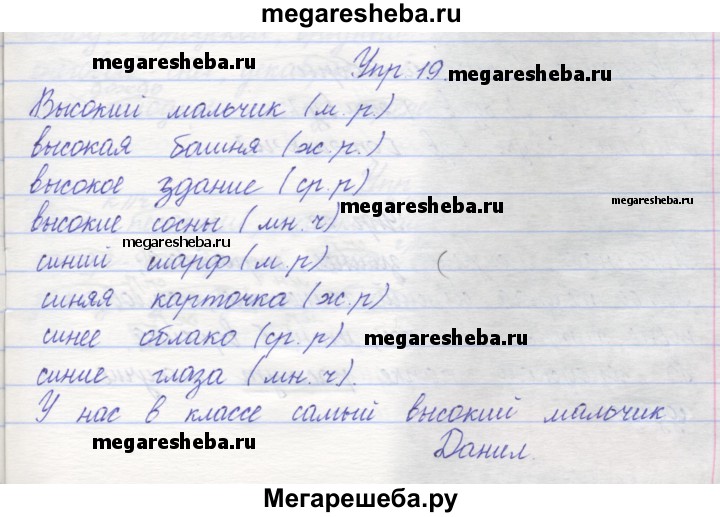 megaresheba.ru
megaresheba.ru Упр 19. megaresheba.ru
Высокий мальчик (м. р.)
высокая башня (ж. р.)
высокое здание (ср. р)
высокие сосны (мн. ч) megaresheba.ru
megaresheba.ru
синий шарф (м. р) (
синяя карточка (ж. р)
синее облако (ср. р) megaresheba.ru
синие глаза (мн. ч).
У нас в классе самый высокий мальчик
megaresheba.ru Данил. megaresheba.ru
Мегарешеба.ру